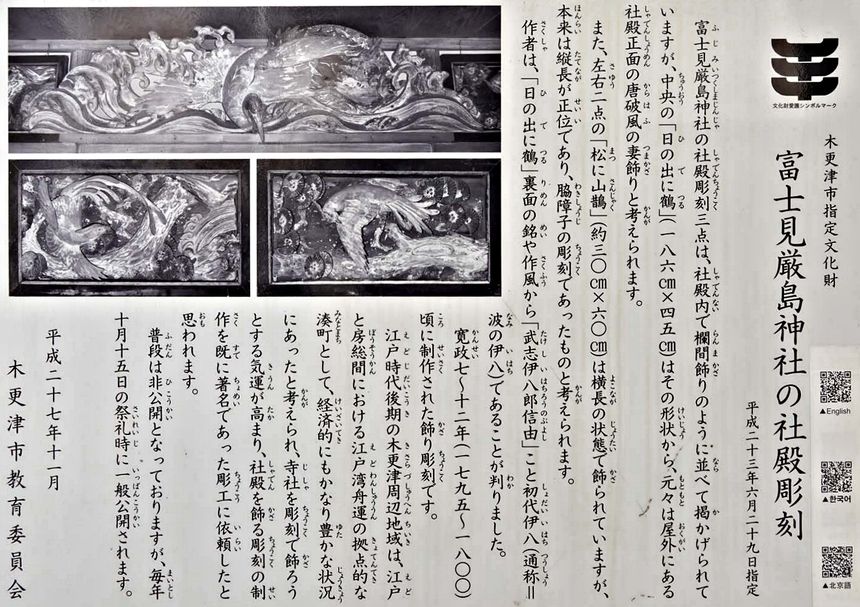 文化財愛護シンボルマーク
木更津市指定文化財
富士見厳島神社の社殿彫刻
平成二十三年六月二十九日指定
富士見厳島神社の社殿彫刻三点は、社殿内で欄間飾りのように並べて掲かげられて
いますが、中央の「日の出に鶴」(一八六㎝×四五㎝)はその形状から、元々は屋外にある
社殿正面の唐破風の妻飾りと考えられます。
また、左右二点の「松に山鵲」(約三〇㎝×六〇㎝)は横長の状態で飾られていますが、
本来は縦長が正位であり、脇障子の彫刻であったものと考えられます。
作者は、「日の出に鶴」裏面の銘や作風から「武志伊八郎信由」こと初代伊八(通称=
波の伊八)であることが判りました。
寛政七~十二年(一七九五~一八〇〇)
頃に制作された飾り彫刻です。
江戸時代後期の木更津周辺地域は、江戸
と房総間における江戸湾舟運の拠点的な
湊町として、経済的にもかなり豊かな状況
にあったと考えられ、寺社を彫刻で飾ろう
とする気運が高まり、社殿を飾る彫刻の制
作を既に著名であった彫工に依頼したと
思われます。
普段は非公開となっておりますが、毎年
十月十五日の祭礼時に一般公開されます。
平成二十七年十一月
木更津市教育委員会
▲English
▲한국어
▲北京語